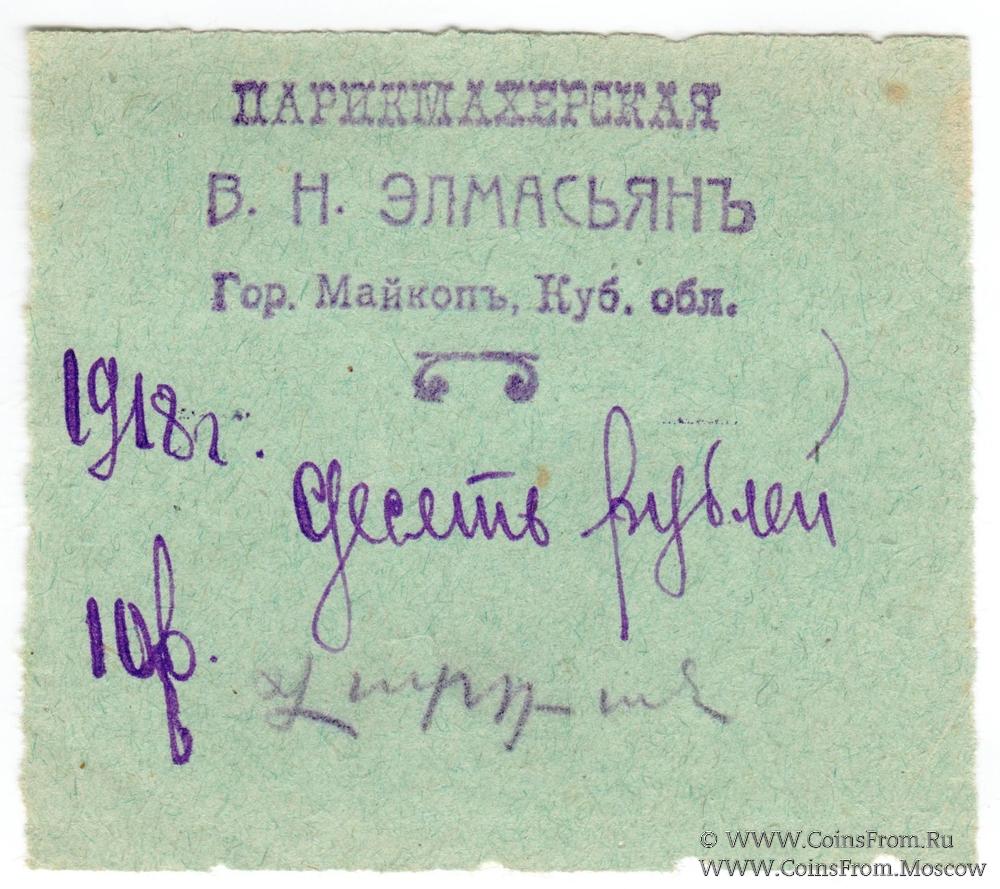 ПАРИКМАХЕРСКАЯ
В. Н. ЭЛМАСЬЯНЪ
Гор. Майкопъ, Куб. обл.
1918 г.
десеть рублей
10 р.
© WWW.CoinsFrom.Ru
WWW.CoinsFrom.Moscow